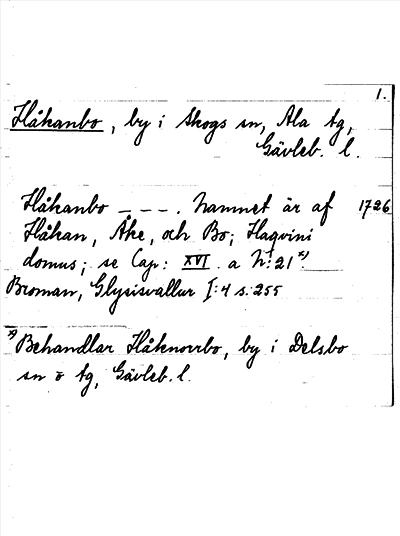 1.
Håkanbo, by i Skogs sn, Ala tg,
Gävleb. l.
Håkanbo _ _ _ . Namnet är af 1726
Håkan, Åke, och Bo; Haqvini
domus; se Cap: XVI. a N:21 x)
Broman, Glysisvallur I:4 s. 255
x) Behandlar Håknorrbo, by i Delsbo
sn o tg, Gävleb. l.